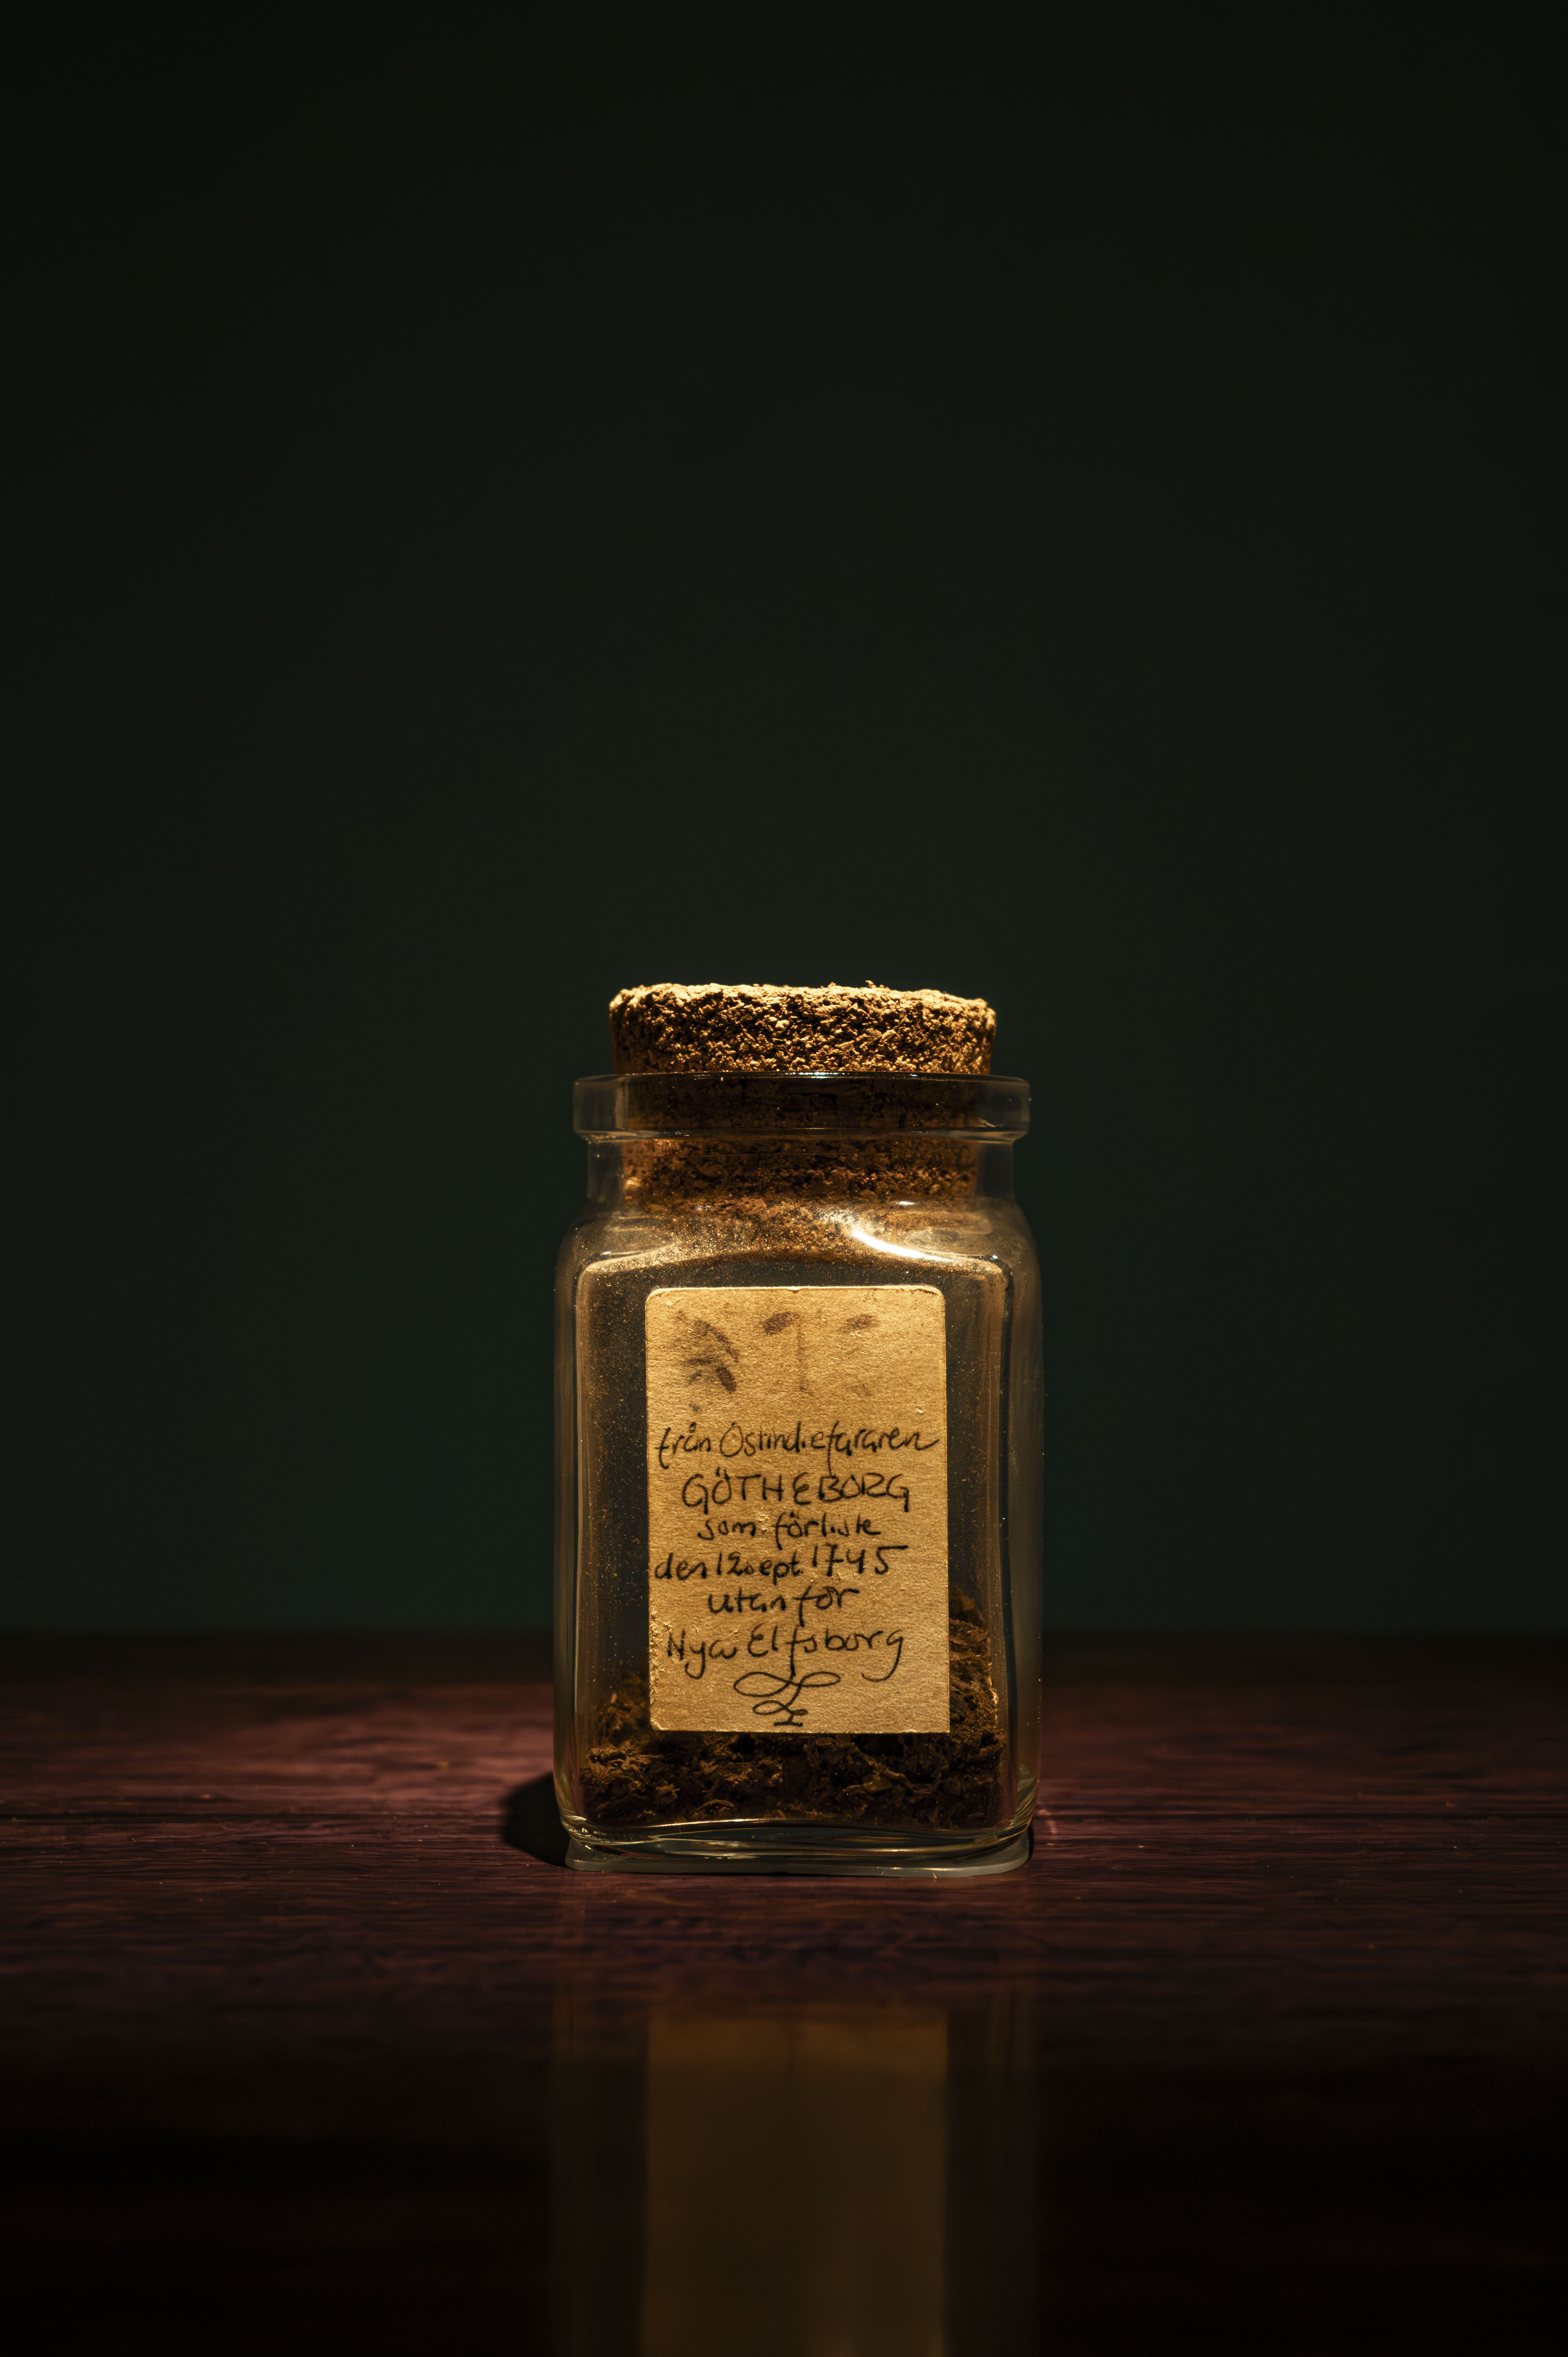 från Ostindiefararen
GÖTHEBORG
som förliste
den 12 sept 1745
utanför
Nya Elfsborg